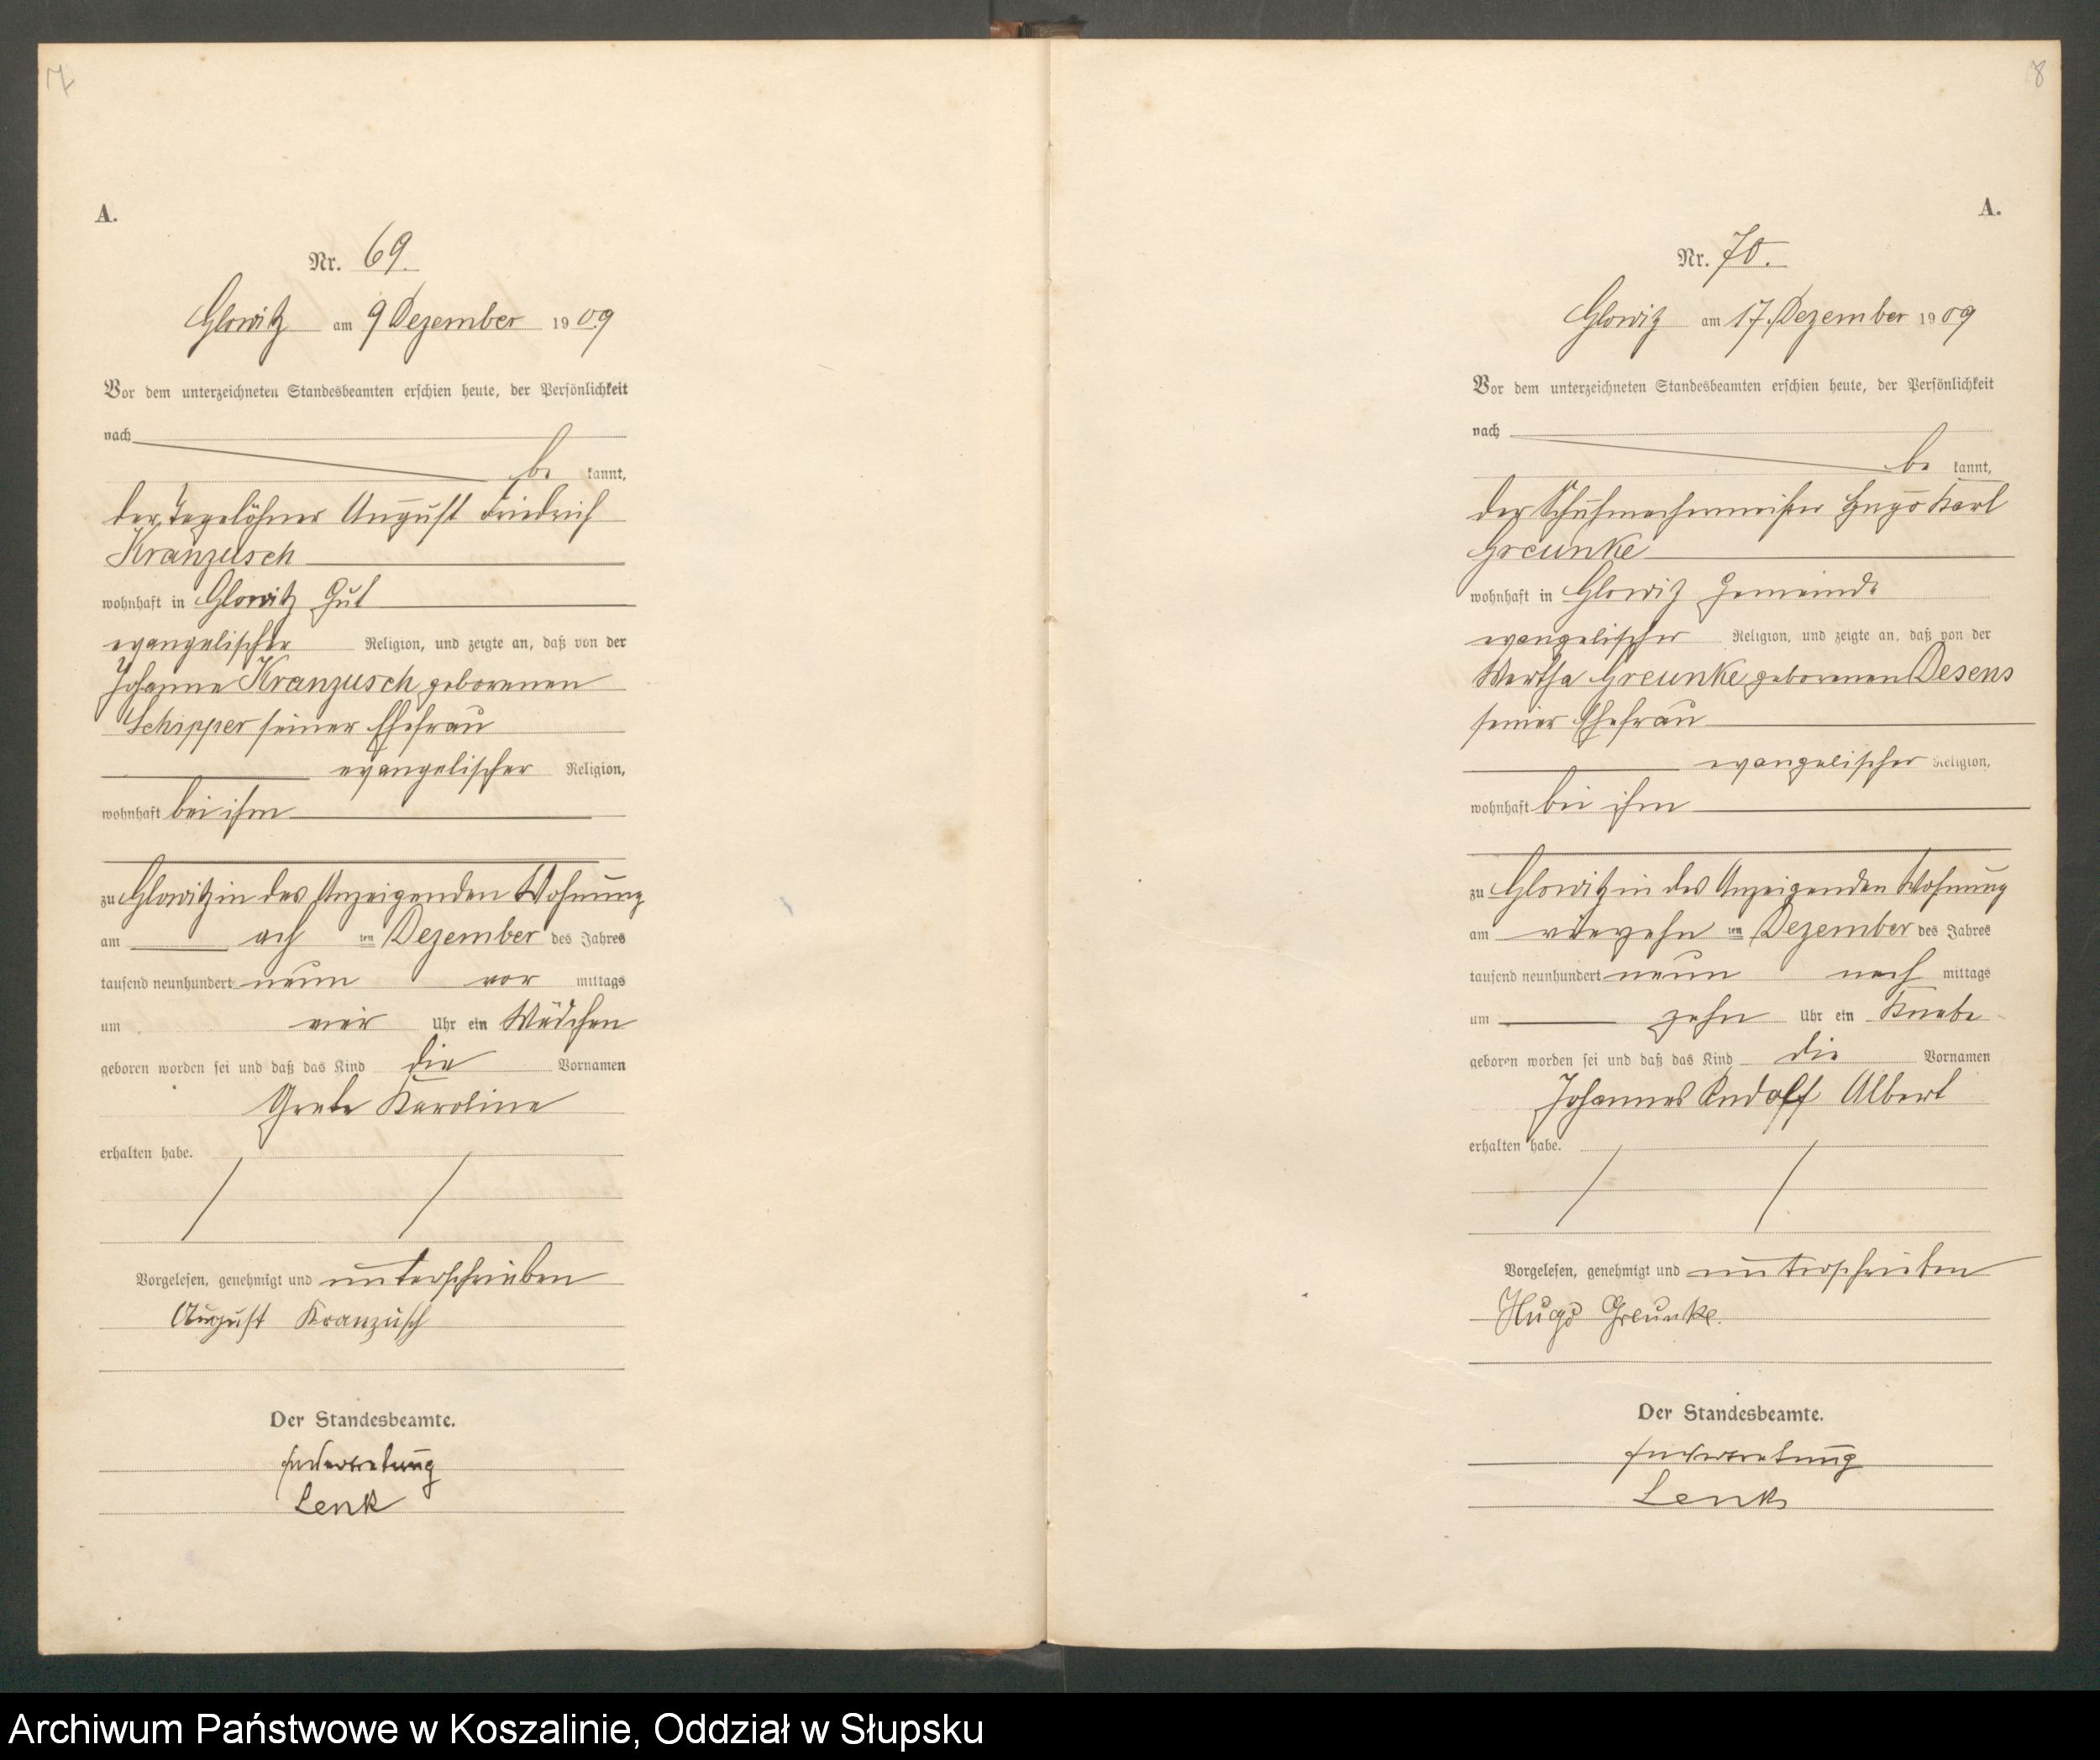 7
A.
Nr. 69.
Glowitz am 9 Dezember 1909
Vor dem unterzeichneten Standesbeamten erschien heute, der Persönlichkeit
nach
be kannt,
der Tagelöhner August Friedrich
Kranzusch
wohnhaft in Glowitz Gut
evangelischer Religion, und zeigte an, daß von der
Johanne Kranzusch geborenen
Schipper seiner Ehefrau
evangelischer Religion,
wohnhaft bei ihm
zu Glowitz in des Anzeigenden Wohnung
am ach ten Dezember des Jahres
tausend neunhundert neun vor mittags
um vier Uhr ein Mädchen
geboren worden sei und daß das Kind die Vornamen
Grete Karoline
erhalten habe.
Vorgelesen, genehmigt und unterschrieben
August Kranzusch
Der Standesbeamte.
In Vertretung
Lenk
8
A.
Nr. 70.
Glowitz am 17. Dezember 1909
Vor dem unterzeichneten Standesbeamten erschien heute, der Persönlichkeit
nach
be kannt,
der Schuhmachermeister Hugo Karl
Greunke
wohnhaft in Glowitz Gemeinde
evangelischer Religion, und zeigte an, daß von der
Martha Greunke geborenen Desens
seiner Ehefrau
evangelischer Religion,
wohnhaft bei ihm
zu Glowitz in des Anzeigenden Wohnung
am vierzehn ten Dezember des Jahres
tausend neunhundert neun nach mittags
um zehn Uhr ein Knabe
geboren worden sei und daß das Kind die Vornamen
Johannes Rudolf Albert
erhalten habe.
Vorgelesen, genehmigt und unterschrieben
Hugo Greunke.
Der Standesbeamte.
In Vertretung
Lenk
Archiwum Państwowe w Koszalinie, Oddział w Słupsku